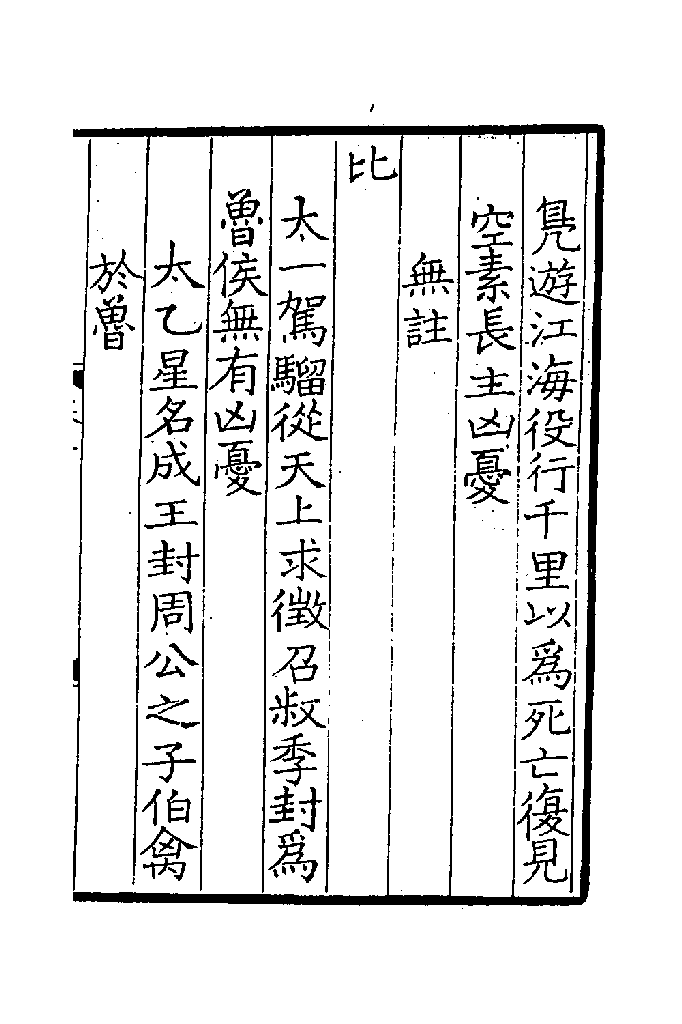 鳬遊江海役行千里以爲死亡復見
空素長主凶憂
無註
比
太一駕騮從天上求徵召叔季封爲
魯侯無有凶憂
太乙星名成王封周公之子伯禽
於魯